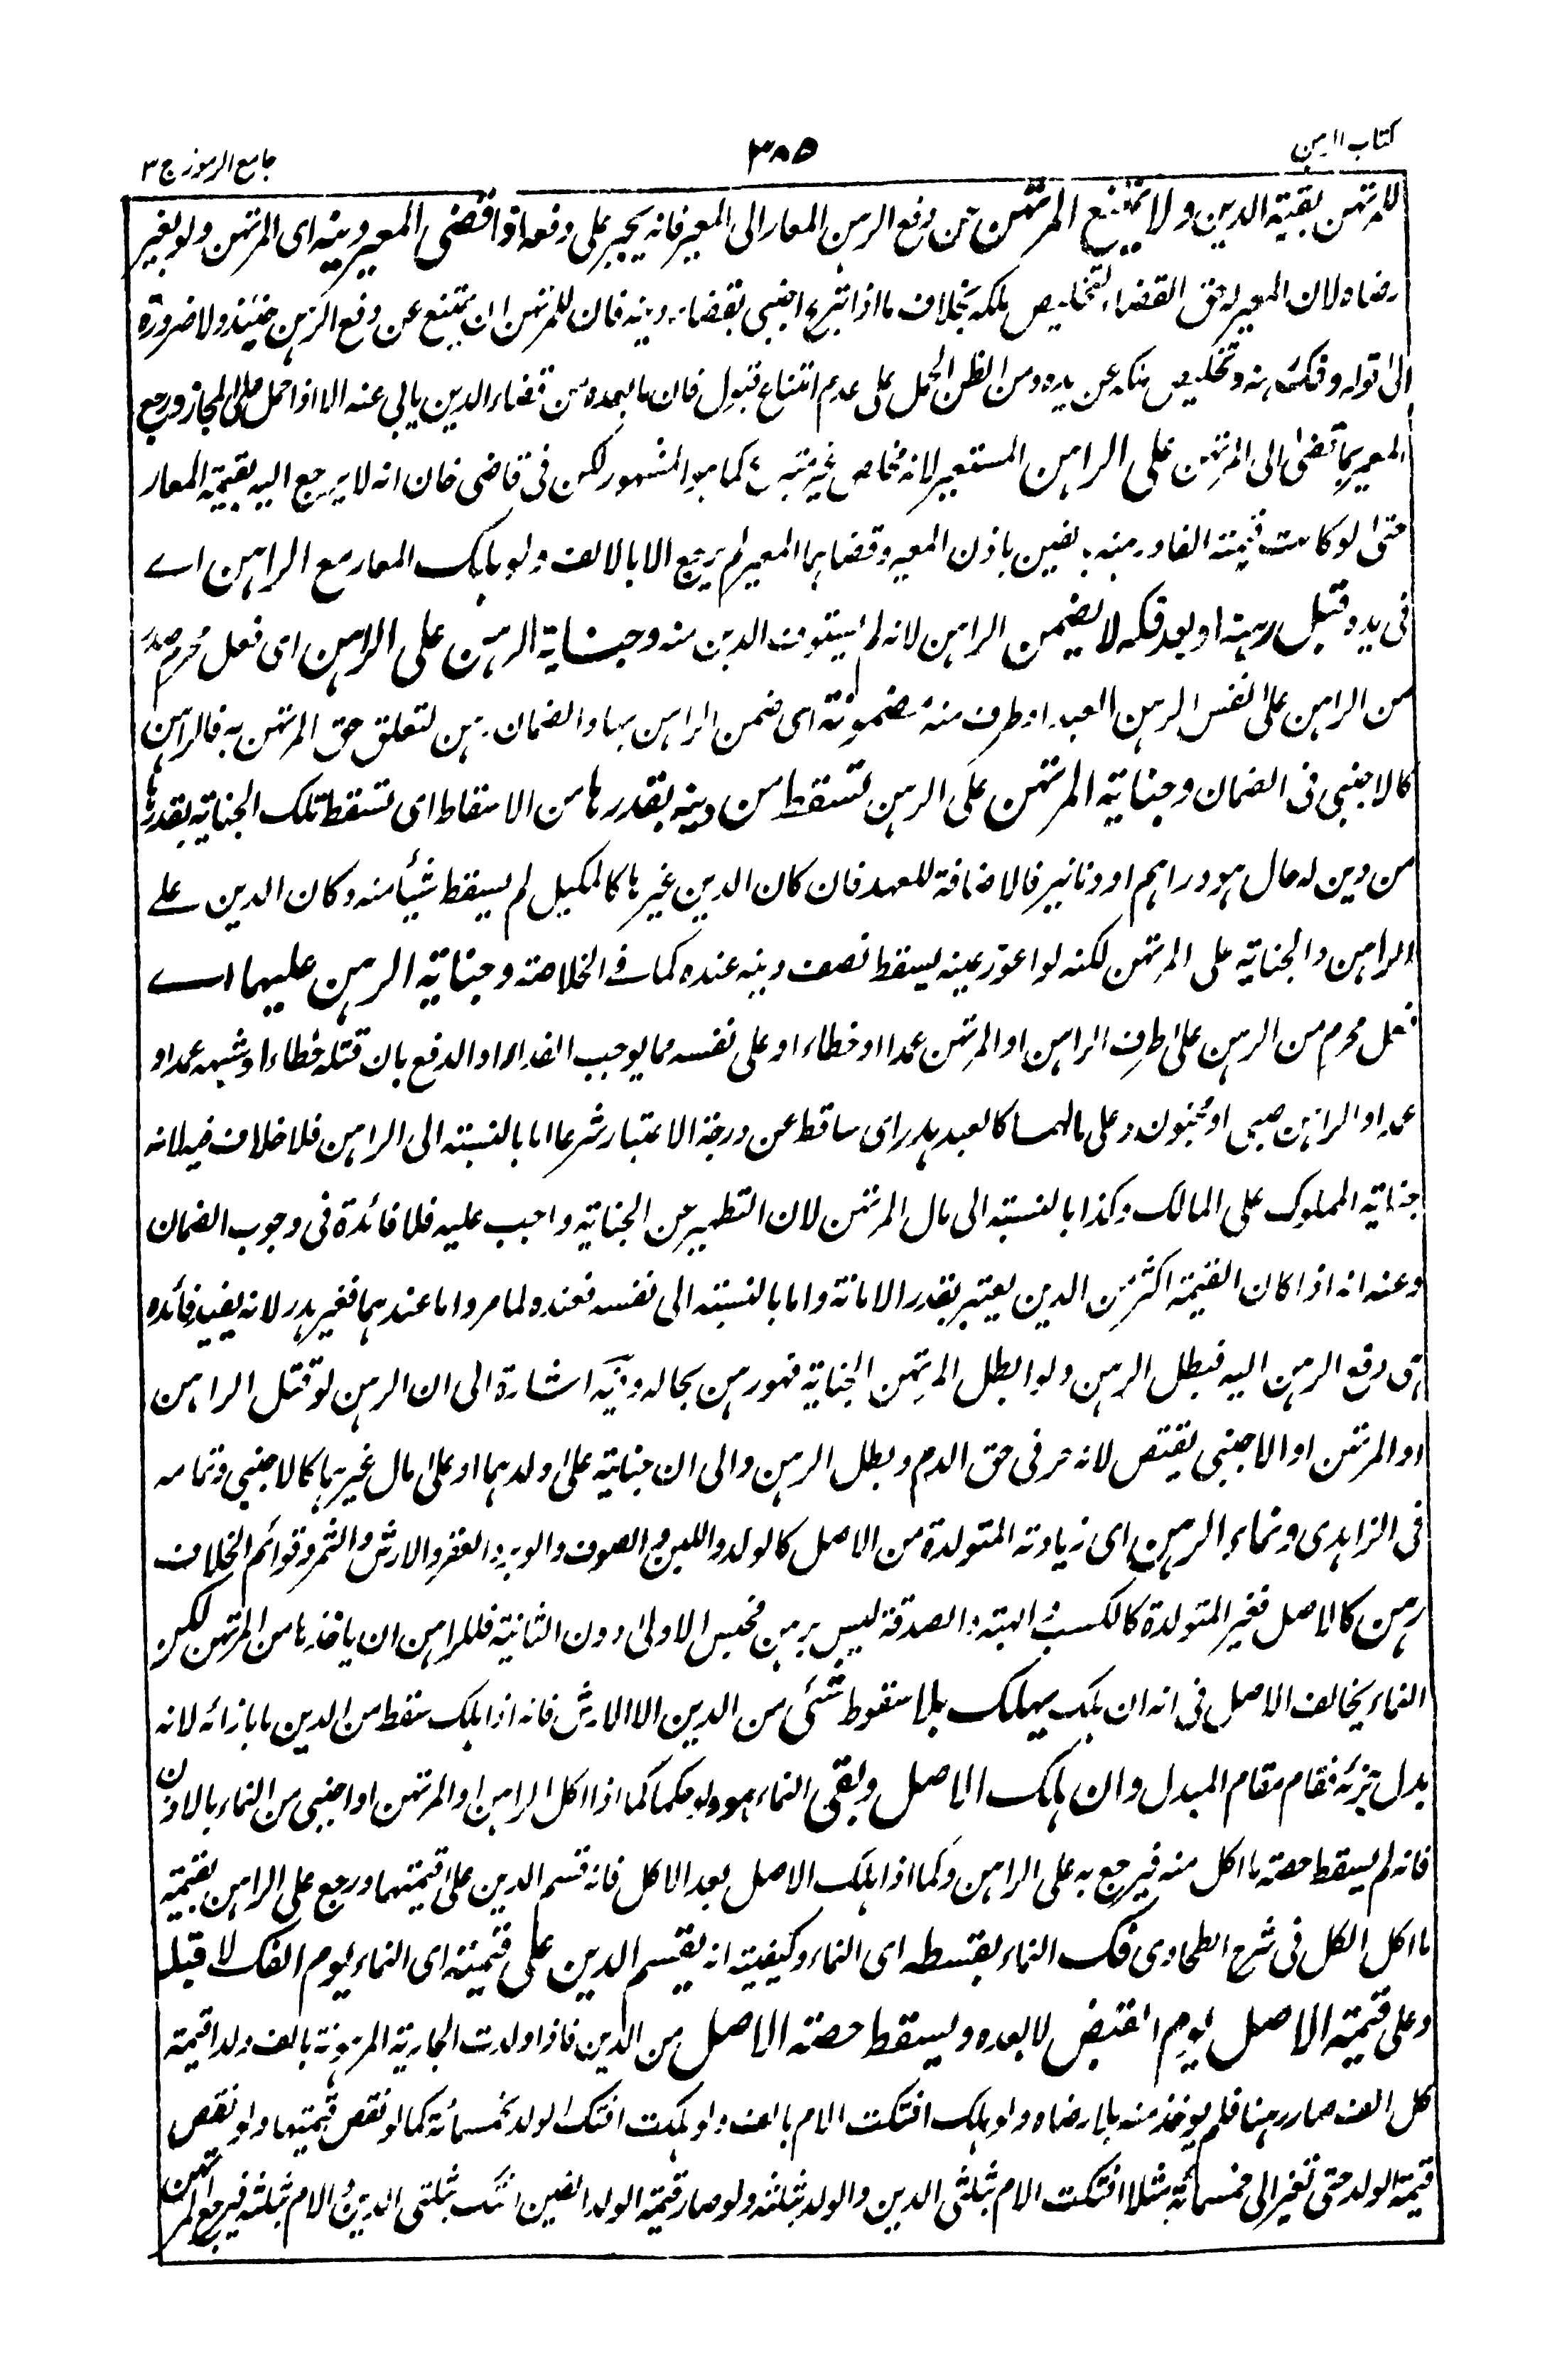 كتاب الرهن
٣٨٥
جامع الرموز ج ٣
للمرتهن بقية الدين ولا يمتنع المرتهن عن دفع الرهن المعار الى المعير فانه يجبر على دفعه اذا قضى المعير دينه اى المرتهن ولو بغير
رضاه لان المعير له حق القضاء لتخليص ملكه بخلاف ما اذا تبرع اجنبى بقضاء دينه فان للمرتهن ان يمتنع عن دفع الرهن حينئذ ولا ضرورة
الى قوله وفك رهنه وتخليص ملكه عن يده ومن الظن الحمل على عدم امتناع قبول فان ما بعده من قضاء الدين يابى عنه الا اذا حمل على المجاز ورجع
المعير بما قضى الى المرتهن على الراهن المستعير لانه مخلص غير متبرع كما هو المشهور لكن فى قاضى خان انه لا يرجع اليه بقيمة المعار
حتى لو كانت قيمته الفا ورهنه بالفين باذن المعير وقضاهما المعير لم يرجع الا بالالف ولو هلك المعار مع الراهن اے
فى يده قبل رهنه او بعد فكه لا يضمن الراهن لانه لم يستوف الدين منه وجناية الرهن على الراهن اى فعل محرم صدر
من الراهن على نفس الرهن العبد او طرف منه مضمونة اى ضمن الراهن بها والضمان رهن لتعلق حق المرتهن به فالراهن
كالاجنبى فى الضمان وجناية المرتهن على الرهن تسقط من دينه بقدرها من الاسقاط اى تسقط تلك الجناية بقدرها
من دين له حال هو دراهم او دنانير فالاضافة للعهد فان كان الدين غيرها كالمكيل لم يسقط شيأ منه وكان الدين علے
الراهن والجناية على المرتهن لكنه لو اعور عينه يسقط نصف دينه عنده كما فى الخلاصة وجناية الرهن عليهما اے
فعل محرم من الرهن على طرف الراهن او المرتهن عمدا او خطاء او على نفسه مما يوجب الفداء او الدفع بان قتله خطاء او شبهه عمد او
عمد او الراهن صبى او مجنون وعلى مالهما كالعبد هدر اى ساقط عن درجة الاعتبار شرعا اما بالنسبة الى الراهن فلا خلاف فيه لانه
جناية المملوك على المالك وكذا بالنسبة الى مال المرتهن لان التطهير عن الجناية واجب عليه فلا فائدة فى وجوب الضمان
وعنه انه اذا كان القيمة اكثر من الدين يعتبر بقدر الامانة واما بالنسبة الى نفسه فعنده لما مر واما عندهما فغير هدر لانه يفيد فائدة
هى دفع الرهن اليه فبطل الرهن ولو ابطل المرتهن الجناية فهو رهن بحاله وفيه اشارة الى ان الرهن لو قتل الراهن
او المرتهن او الاجنبى يقتص لانه حر فى حق الدم وبطل الرهن والى ان جناية على ولدهما او على مال غيرهما كالاجنبى وتمامه
فى الزاهدى ونماء الرهن اى زيادته المتولدة من الاصل كالولد واللبن والصوف والوبر والعقر والارش والثمر وقوائم الخلاف
رهن كالاصل فغير المتولدة كالكسب والهبة والصدقة ليس برهن فحبس الاولى دون الثانية فللراهن ان ياخذها من المرتهن لكن
النماء يخالف الاصل فى انه ان هلك يهلك بلا سقوط شئ من الدين الا الارش فانه اذا هلك سقط من الدين ما بازائه لانه
بدل جزئه فقام مقام المبدل وان هلك الاصل وبقى النماء هو ولو حكما كما اذا اكل الراهن او المرتهن او اجنبى من النماء بالاذن
فانه لم يسقط حصة ما اكل منه فيرجع به على الراهن وكما اذا هلك الاصل بعد الاكل فانه قسم الدين على قيمتهما ورجع على الراهن بقيمة
ما اكل الكل فى شرح الطحاوى فك النماء بقسطه اى النماء وكيفيته انه يقسم الدين على قيمته اى النماء يوم الفك لا قبله
وعلى قيمة الاصل يوم القبض لا بعده ويسقط حصة الاصل من الدين فاذا ولدت الجارية المرهونة بالف ولدا قيمة
كل الف صار رهنا فلم يوخذ منه بلا رضاه ولو هلك افتكت الام بالف ولو هلكت افتك الولد بخمسمائة كما لو نقص قيمتهما ولو نقص
قيمة الولد حتى تغير الى خمسمائة مثلا افتكت الام بثلثى الدين والولد بثلثه ولو صار قيمة الولد الفين افتك بثلثى الدين والام بثلثه فيرجع المرتهن